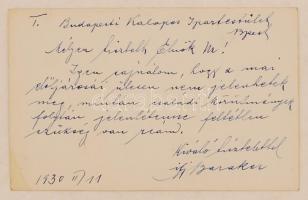 T. Budapesti Kalapos Ipartestület
Bpest
Mélyen tisztelt Elnök Úr!
Igen sajnálom, hogy a mai
előljárósági ülésen nem jelenhetek
meg, miután családi körülmények
folytán jelenlétemre feltétlen
szükség van ream.
Kiváló tisztelettel
ifj Baraker
1930 II/11